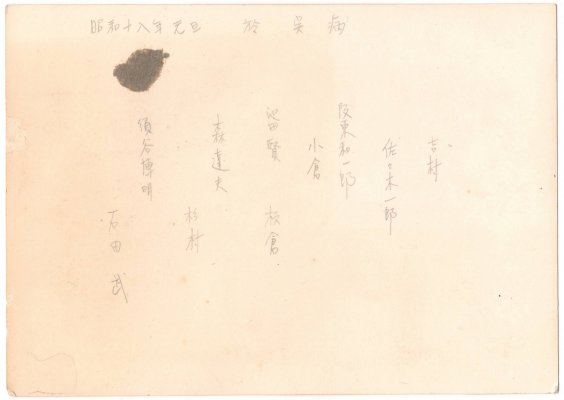 昭和十八年元旦　於　呉病
吉村
佐々木一郎
阪東和一郎
小倉
富田賢
板倉
森達夫
杉村
須谷博明
石田武